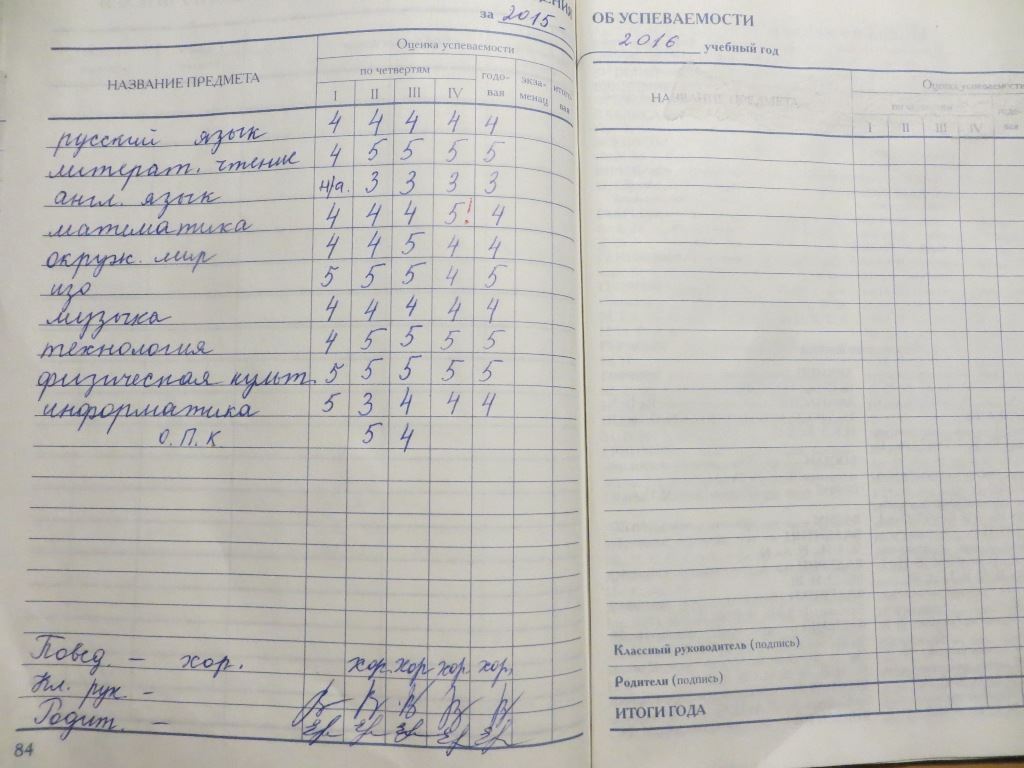 ЕНИЯ
за 2015 -
НАЗВАНИЕ ПРЕДМЕТА
Оценка успеваемости
по четвертям
годо-
вая
экза-
менац
итого-
вая
I II III IV
русский язык 4 4 4 4 4
литерат. чтение 4 5 5 5 5
англ. язык н/а. 3 3 3 3
математика 4 4 4 5! 4
окруж. мир 4 4 5 4 4
изо 5 5 5 4 5
музыка 4 4 4 4 4
технология 4 5 5 5 5
физическая культ. 5 5 5 5 5
информатика 5 3 4 4 4
О.П.К 5 4
Повед. - хор. хор. хор. хор. хор.
Кл. рук -
Родит. -
84
ОБ УСПЕВАЕМОСТИ
2016 учебный год
НАЗВАНИЕ ПРЕДМЕТА
Оценка успеваемости
по четвертям
годо-
вая
I II III IV
Классный руководитель (подпись)
Родители (подпись)
ИТОГИ ГОДА